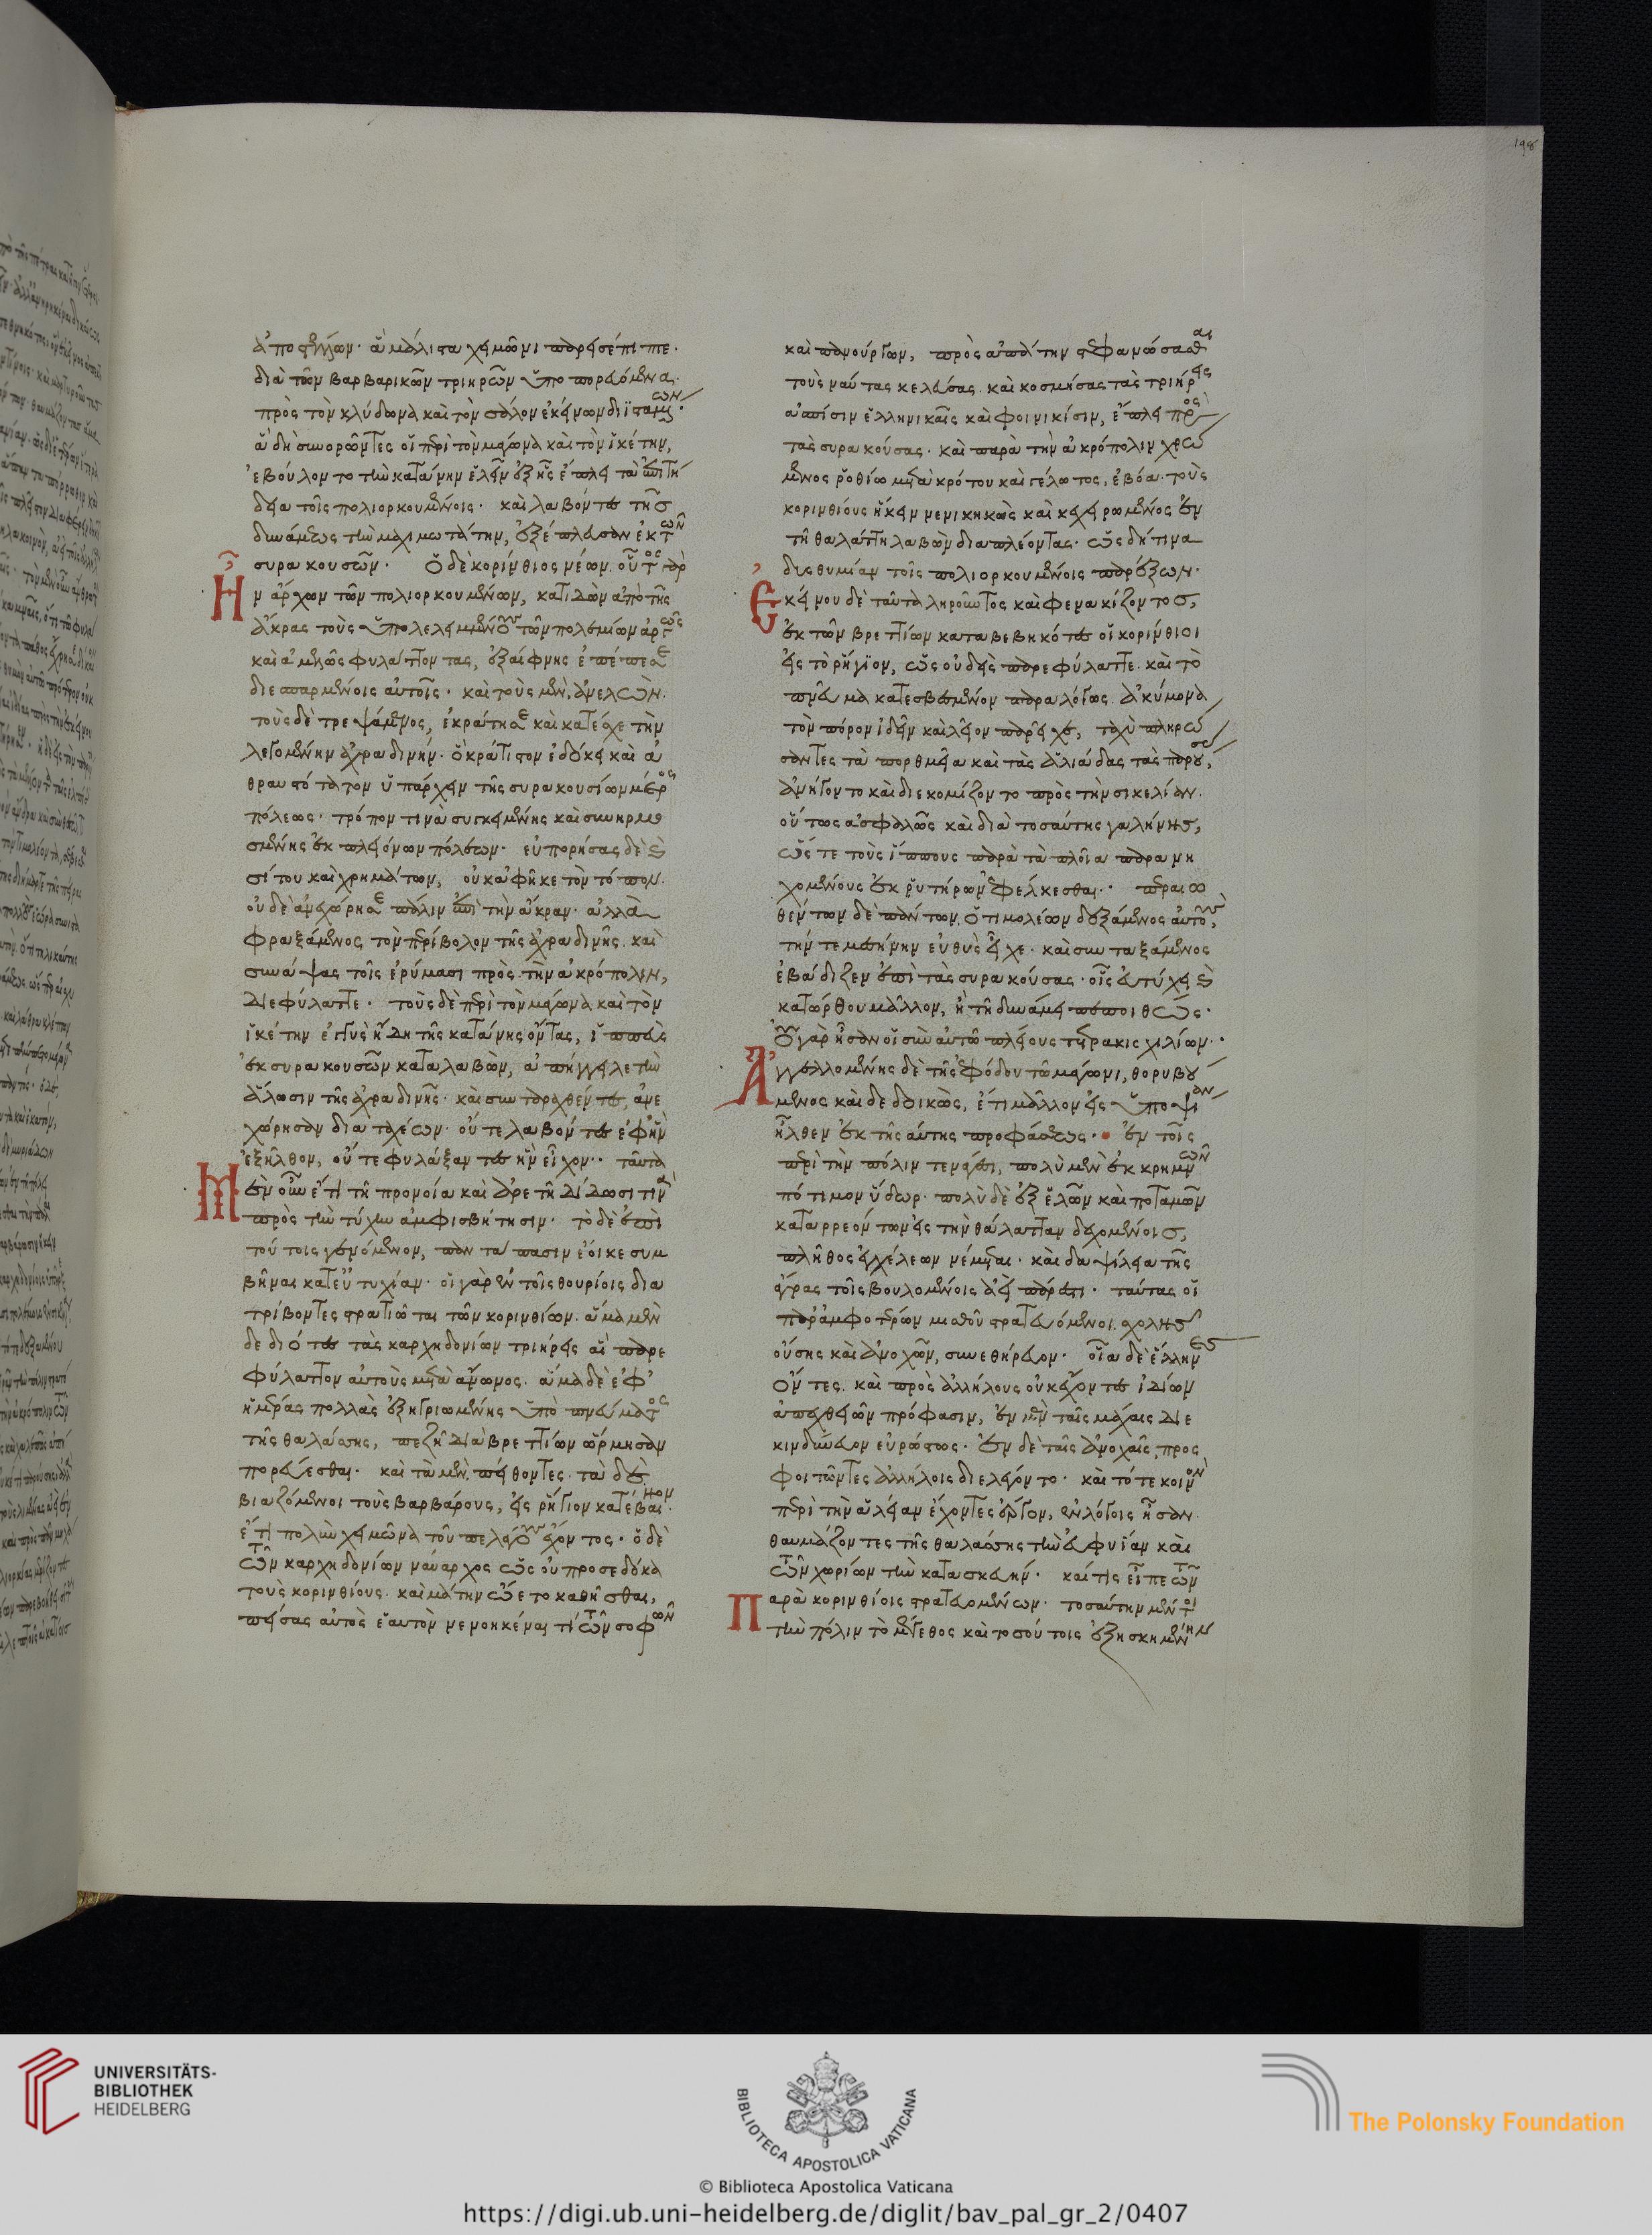 ἀποστέλλων· ἃ μάλιστα χειμῶνι παρεισέπιπτε.
διὰ τῶν βαρβαρικῶν τριηρῶν ὑποπορευόμενα.
πρὸς τὸν κλύδωνα καὶ τὸν σάλον ἐκείνων διϊσταμένων·
ἃ δὴ συνορῶντες οἱ περὶ τὸν μάγωνα καὶ τὸν ἱκέτην,
ἐβούλοντο τὴν κατάνην ἑλεῖν ἐξ ἧς ἐπλει τὰ ἐπιτή
δεια τοῖς πολιορκουμένοις· καὶ λαβόντες τῆς
δυνάμεως τὴν μαχιμωτάτην, ἐξέπλευσαν ἐκ τῶν
συρακουσῶν· ὁ δὲ κορίνθιος νέων. οὗτος γὰρ
ἦν ἄρχων τῶν πολιορκουμένων, κατιδὼν ἀπὸ τῆς
ἄκρας τοὺς ὑπολελειμμένους τῶν πολεμίων ἀργῶς
καὶ ἀμελῶς φυλάττοντας, ἐξαίφνης ἐπέπεσε
διεσπαρμένοις αὐτοῖς· καὶ τοὺς μὲν, ἀνελὼν.
τοὺς δὲ τρεψάμενος, ἐκράτησε καὶ κατέσχε τὴν
λεγομένην ἀχραδινήν· ὃ κράτιστον ἐδόκει καὶ ἀ
θραυστότατον ὑπάρχειν τῆς συρακουσίων μέρος
πόλεως· τρόπον τινὰ συγκειμένης καὶ συνηρμο
σμένης ἐκ πλειόνων πόλεων· εὐπορήσας δὲ καὶ
σίτου καὶ χρημάτων, οὐκ ἀφῆκε τὸν τόπον.
οὐδὲ ἀνεχώρησε πάλιν ἐπὶ τὴν ἄκραν· ἀλλὰ
φραξάμενος τὸν περίβολον τῆς ἀχραδινῆς. καὶ
συνάψας τοῖς ἐρύμασι πρὸς τὴν ἀκρόπολιν,
διεφύλαττε· τοὺς δὲ περὶ τὸν μάγωνα καὶ τὸν
ἱκέτην ἐγγὺς ἤδη τῆς κατάνης ὄντας, ἱππεὺς
ἐκ συρακουσῶν καταλαβὼν, ἀπήγγειλε τὴν
ἅλωσιν τῆς ἀχραδινῆς· καὶ συνταραχθέντες, ἀνε
χώρησαν διαταχέων· οὔτε λαβόντες ἐφ' ἣν
ἐξῆλθον, οὔτε φυλάξαντες ἣν εἶχον· ταῦτα
μὲν οὖν ἔτι τῇ προνοίᾳ καὶ ἀρετῇ δίδωσι τινὰ
πρὸς τὴν τύχην ἀμφισβήτησιν· τὸ δὲ ἐπὶ
τούτοις γενόμενον, παντάπασιν ἔοικε συμ
βῆναι κατ' εὐτυχίαν· οἱ γὰρ ἐν τοῖς θουρίοις δια
τρίβοντες στρατιῶται τῶν κορινθίων. ἅμα μὲν
δεδιότες τὰς καρχηδονίων τριήρεις αἳ παρε
φύλαττον αὐτοὺς μετὰ ἄννωνος. ἅμα δὲ ἐφ'
ἡμέρας πολλὰς ἐξηγριωμένης ὑπὸ πνεύματος
τῆς θαλάσσης, πεζῇ διὰ βρεττίων ὥρμησαν
πορεύεσθαι· καὶ τὰ μὲν πείθοντες. τὰ δὲ
βιαζόμενοι τοὺς βαρβάρους, εἰς ῥήγιον κατέβαινον.
ἔτι πολὺν χειμῶνα τοῦ πελάγους ἔχοντος· ὁ δὲ
τῶν καρχηδονίων ναύαρχος ὡς οὐ προσεδόκα
τοὺς κορινθίους. καὶ μάτην ᾤετο καθῆσθαι,
πείσας αὐτὸς ἑαυτὸν νενοηκέναι τί τῶν σοφῶν
καὶ πανούργων, πρὸς ἀπάτην στεφανώσασθαι
τοὺς ναύτας κελεύσας. καὶ κοσμήσας τὰς τριήρεις
ἀσπίσιν ἑλληνικαῖς καὶ φοινικίσιν, ἔπλει πρὸς
τὰς συρακούσας· καὶ παρὰ τὴν ἀκρόπολιν χρώ
μενος ῥοθίῳ μετὰ κρότου καὶ γέλωτος, ἐβόα. τοὺς
κορινθίους ἥκειν νενικηκὼς καὶ κεχειρωμένος ἐν
τῇ θαλάττῃ λαβὼν διαπλέοντας· ὡς δή τινα
δυσθυμίαν τοῖς πολιορκουμένοις παρέξων·
ἐκείνου δὲ ταῦτα ληροῦντος καὶ φενακίζοντος,
ἐκ τῶν βρεττίων καταβεβηκότες οἱ κορίνθιοι
εἰς τὸ ῥήγϊον, ὡς οὐδεὶς παρεφύλαττε. καὶ τὸ
πνεῦμα κατεσβεσμένον παραλόγως ἀκύμονα
τὸν πόρον ἰδεῖν καὶ λεῖον παρεῖχε, ταχὺ πληρώ
σαντες τὰ πορθμεῖα καὶ τὰς ἁλιάδας τὰς παρούσας,
ἀνήγοντο καὶ διεκομίζοντο πρὸς τὴν σικελίαν.
οὕτως ἀσφαλῶς καὶ διὰ τοσαύτης γαλήνης,
ὥστε τοὺς ἵππους παρὰ τὰ πλοῖα παρανη
χομένους ἐκ ῥυτήρων ἐφέλκεσθαι· περαιω
θέντων δὲ πάντων, ὁ τιμολέων δεξάμενος αὐτοὺς,
τήν τε μεσήνην εὐθὺς εἶχε· καὶ συνταξάμενος
ἐβάδιζεν ἐπὶ τὰς συρακούσας· οἷς εὐτύχει καὶ
κατώρθου μᾶλλον, ἢ τῇ δυνάμει πεποιθώς·
οὐ γὰρ ἦσαν οἱ σὺν αὐτῷ πλείους τετράκις χιλίων·
ἀγγελλομένης δὲ τῆς ἐφόδου τῷ μάγωνι, θορυβού
μενος καὶ δεδοικὼς, ἔτι μᾶλλον εἰς ὑποψίαν
ἦλθεν ἐκ τῆς αὐτῆς προφάσεως· ἐν τοῖς
περὶ τὴν πόλιν τενάγεσι, πολὺ μὲν ἐκ κρηνῶν
πότιμον ὕδωρ· πολὺ δὲ ἐξ ἑλῶν καὶ ποταμῶν
καταρρεόντων εἰς τὴν θάλατταν δεχομένοις,
πλῆθος ἐγχέλεων νέμεται· καὶ δαψίλεια τῆς
ἄγρας τοῖς βουλομένοις ἀεὶ πάρεστι· ταύτας οἱ
παρ' ἀμφοτέρων μισθοῦ στρατευόμενοι. σχολῆς
οὔσης καὶ ἀνοχῶν, συνεθήρευον· οἷα δὲ ἕλληνες
ὄντες. καὶ πρὸς ἀλλήλους οὐκ ἔχοντες ἰδίων
ἀπεχθειῶν πρόφασιν, ἐν μὲν ταῖς μάχαις διε
κινδύνευον εὐρώστως· ἐν δὲ ταῖς ἀνοχαῖς, προς
φοιτῶντες ἀλλήλοις διελέγοντο· καὶ τότε κοινὸν
περὶ τὴν ἁλείαν ἔχοντες ἔργον, ἐν λόγοις ἦσαν.
θαυμάζοντες τῆς θαλάσσης τὴν εὐφυΐαν καὶ
τῶν χωρίων τὴν κατασκευήν· καί τις εἶπε τῶν
παρὰ κορινθίοις στρατευομένων· τοσαύτην μέντοι
τὴν πόλιν τὸ μέγεθος καὶ τοσούτοις ἐξησκημένην
UNIVERSITÄTS-
BIBLIOTHEK
HEIDELBERG
BIBLIOTECA APOSTOLICA VATICANA
The Polonsky Foundation
© Biblioteca Apostolica Vaticana
https://digi.ub.uni-heidelberg.de/diglit/bav_pal_gr_2/0407